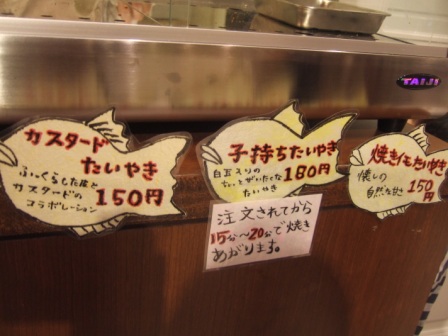 TAIJI
カスタード
たいやき
ふっくらした皮と
カスタードの
コラボレーション
150円
子持ちたいやき
白玉入りの
ちょっとぜいたくな
たいやき
180円
注文されてから
15分〜20分で焼き
あがります。
焼きいもたいやき
懐しの
自然な甘さ
150円